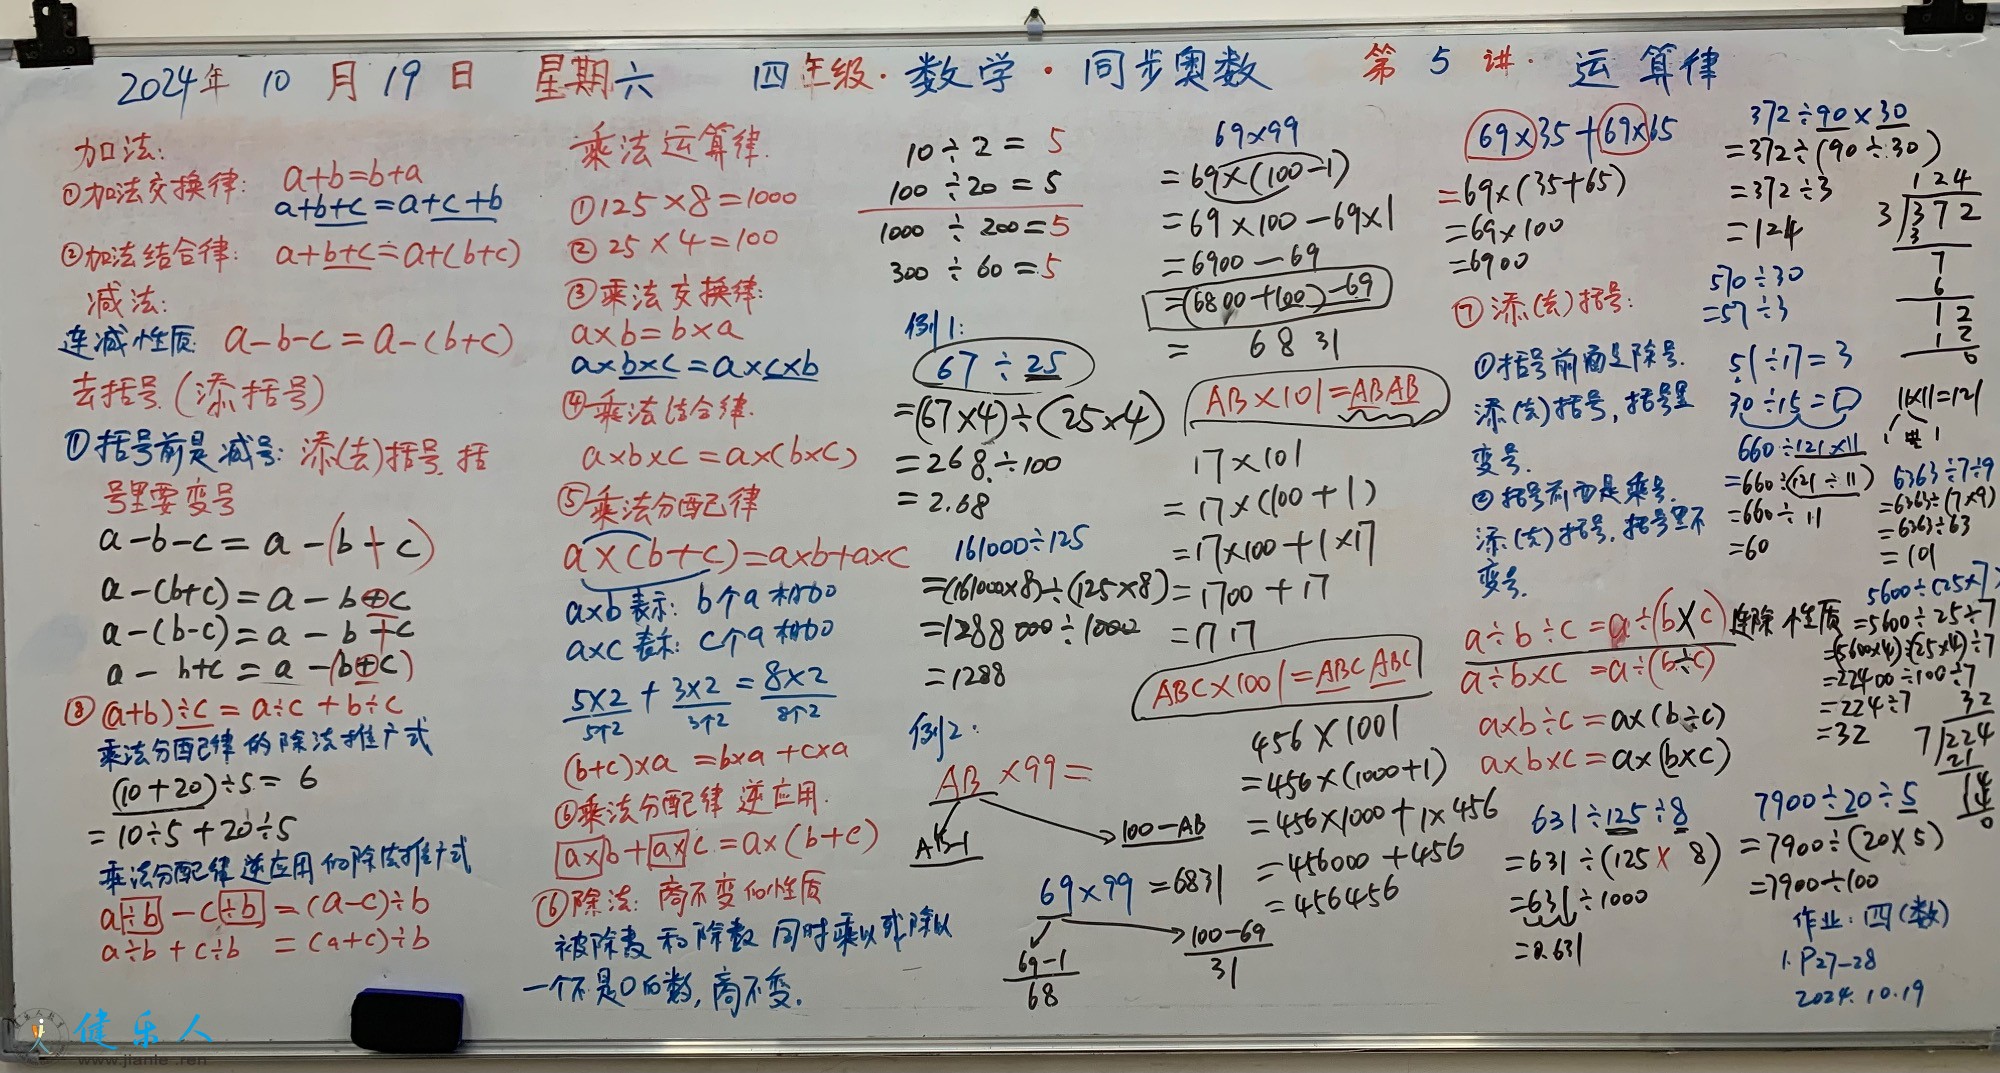 2024年 10 月 19 日 星期六 四年级·数学·同步奥数 第 5 讲· 运算律
加法:
①加法交换律: a+b=b+a
a+b+c=a+c+b
②加法结合律: a+b+c=a+(b+c)
减法:
连减性质: a-b-c=a-(b+c)
去括号(添括号)
①括号前是减号: 添(去)括号, 括
号里要变号
a-b-c=a-(b+c)
a-(b+c)=a-b⊕c
a-(b-c)=a-b+c
a-b+c=a-(b⊕c)
⑧(a+b)÷c=a÷c+b÷c
乘法分配律的除法推广式
(10+20)÷5=6
=10÷5+20÷5
乘法分配律逆应用的除法推广式
a÷b-c÷b=(a-c)÷b
a÷b+c÷b=(a+c)÷b
乘法运算律:
①125×8=1000
②25×4=100
③乘法交换律:
a×b=b×a
a×b×c=a×c×b
④乘法结合律:
a×b×c=a×(b×c)
⑤乘法分配律
a×(b+c)=a×b+a×c
a×b表示: b个a相加
a×c表示: c个a相加
5×2+3×2=8×2
5个2 3个2 8个2
(b+c)×a=b×a+c×a
⑥乘法分配律逆应用.
a×b+a×c=a×(b+c)
⑥除法: 商不变的性质
被除数和除数同时乘以或除以
一个不是0的数, 商不变.
10÷2=5
100÷20=5
1000÷200=5
300÷60=5
例1:
67÷25
=(67×4)÷(25×4)
=268÷100
=2.68
161000÷125
=(161000×8)÷(125×8)
=1288000÷1000
=1288
例2:
AB×99=
AB-1 100-AB
69×99=6831
69-1 100-69
68 31
69×99
=69×(100-1)
=69×100-69×1
=6900-69
=(6800+100)-69
= 6831
AB×101=ABAB
17×101
=17×(100+1)
=17×100+1×17
=1700+17
=1717
ABC×1001=ABCABC
456×1001
=456×(1000+1)
=456×1000+1×456
=456000+456
=456456
69×35+69×65
=69×(35+65)
=69×100
=6900
⑦添(去)括号:
①括号前面是除号.
添(去)括号, 括号里
变号.
②括号前面是乘号.
添(去)括号, 括号里不
变号.
a÷b÷c=a÷(b×c) 连除性质
a÷b×c=a÷(b÷c)
a×b÷c=a×(b÷c)
a×b×c=a×(b×c)
631÷125÷8
=631÷(125×8)
=631÷1000
=0.631
372÷90×30
=372÷(90÷30)
=372÷3
=124
124
3 372
3
7
6
12
12
0
570÷30
=57÷3
51÷17=3
30÷15=
11×11=121
660÷121×11
=660÷(121÷11)
=660÷11
=60
6363÷7÷9
=6363÷(7×9)
=6363÷63
=101
5600÷(25×7)
=5600÷25÷7
=(5600×4)÷(25×4)÷7
=22400÷100÷7
=224÷7
=32
32
7 224
21
14
14
0
7900÷20÷5
=7900÷(20×5)
=7900÷100
作业: 四(数)
1. P27-28
2024.10.19
健乐人
www.jianle.ren